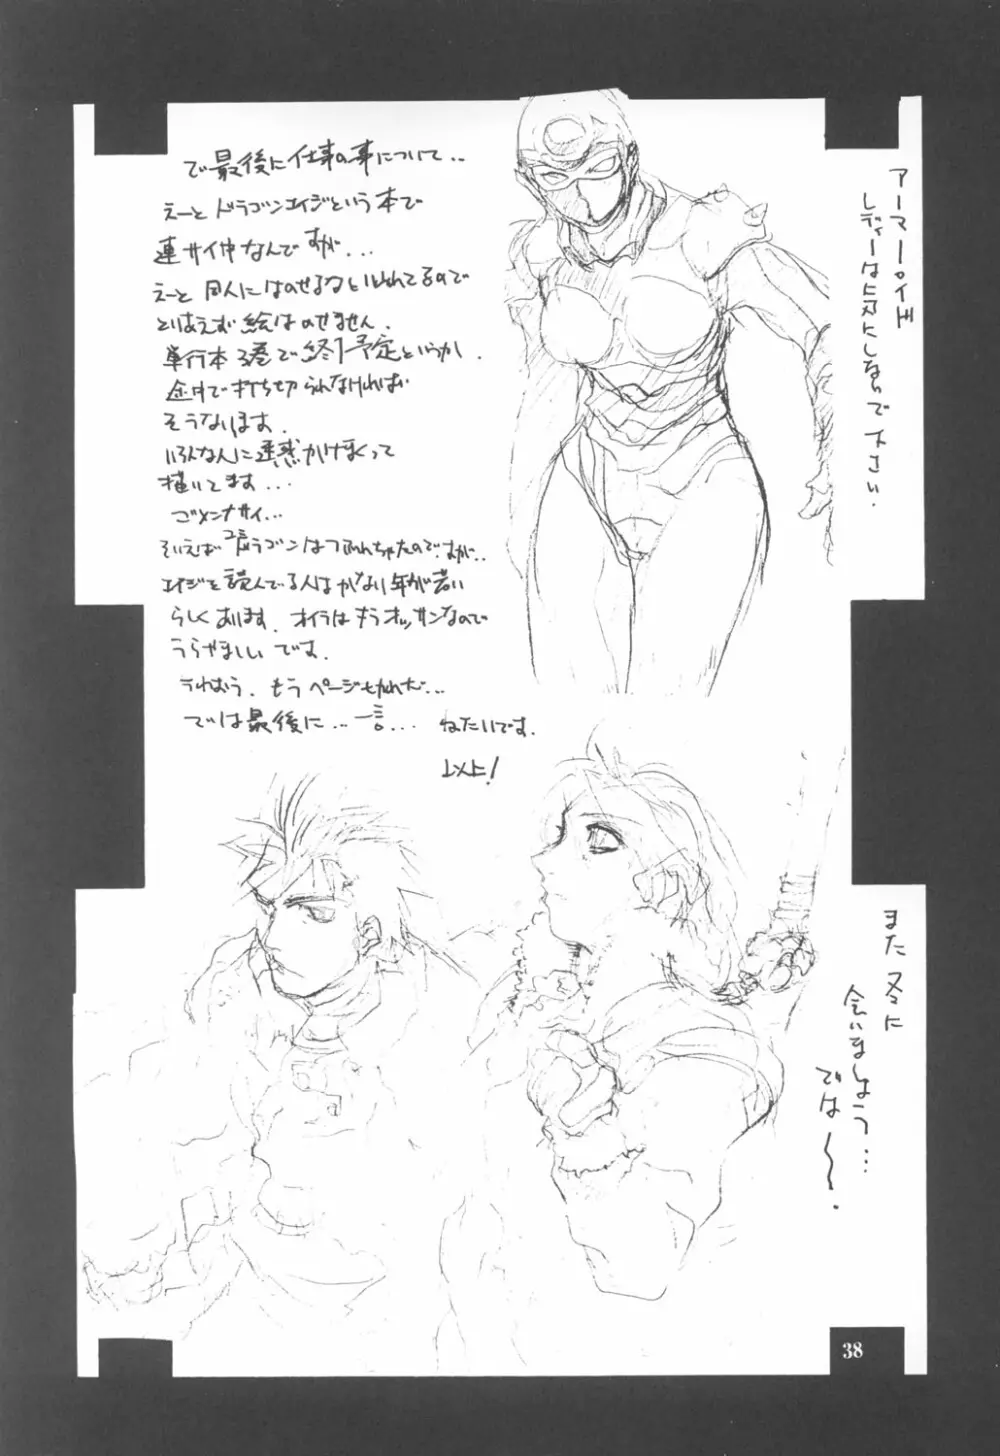 で最後に仕事の事について..
えーと ドラゴンエイジという本で
連サイ中なんですが...
えーと 同人にはのせるなといわれてるので
とりあえず絵はのせません.
単行本3巻で終了予定というか.
途中で打ち切られなければ
そうなります.
いろんな人に迷惑かけまくって
描いてます...
ゴメンナサイ...
そいえばドラゴンはつぶれちゃたのですが..
エイジを読んでる人はかなり年が若い
らしくあります. オイラはもうオッサンなので
うらやましいです.
うわおう. もうページせかれだ...
では最後に...一言... ねたいです.
以上!
アーマーロイド
レディーは気にしないで下さい.
また 冬に
会いましょう...
では〜.
38